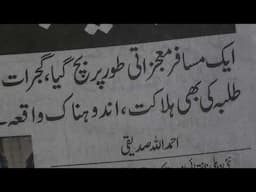 ایک مسافر معجزاتی طور پر بچ گیا، گجرات
طلبہ کی بھی ہلاکت، اندوہناک واقعہ۔
احمد اللہ صدیقی